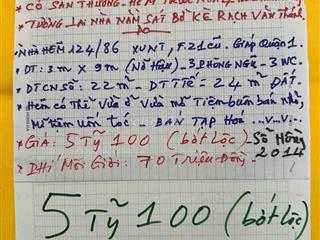 * CÓ SÂN THƯỢNG - HẺM TRƯỚC
* TƯƠNG LAI NHÀ NẰM SÁT BỜ KÈ RẠCH VĂN THÁNH.
* NHÀ HẺM 124/86 XVNT, F.21 CŨ. GIÁP QUẬN 1.
* DT: 3m x 9m (NỞ HẬU). 3 PHÒNG NGỦ - 3 WC.
* DTCN SỔ: 22m - DT TTẾ = 24m ĐẤT.
* Hẻm có THỂ VỪA Ở VỪA MỞ TIỆM BUÔN BÁN NHỎ,
MỞ TIỆM UỐN TÓC - BÁN TẠP HOÁ ...V...V...
* Giá: 5 Tỷ 100 (bớt Lộc) - SỔ HỒNG 2014
* PHÍ MÔI GIỚI: 70 TRIỆU ĐỒNG.
5 Tỷ 100 (bớt Lộc)